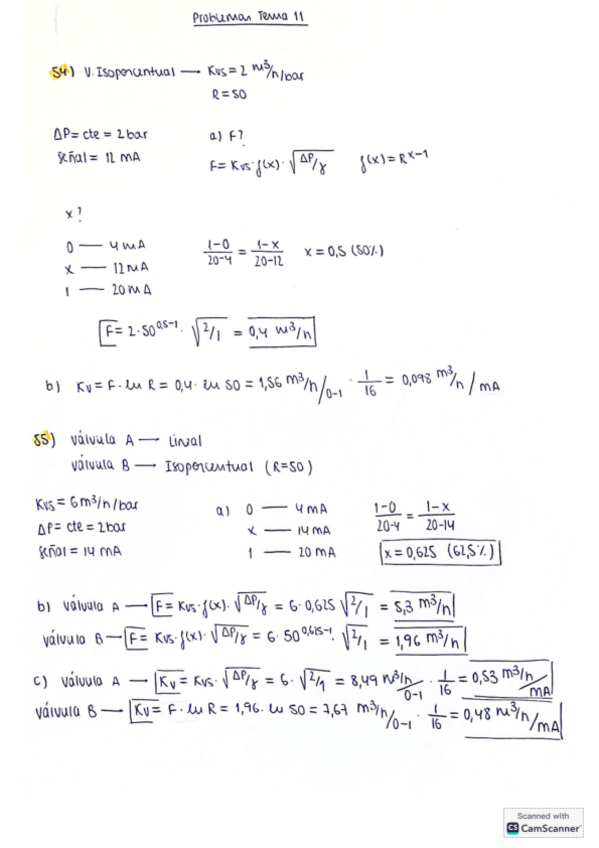 Problemas Tema 11
54) V. Isoporcentual → Kvs = 2 m³/h/bar
R = 50
ΔP = cte = 2 bar a) F?
señal = 12 mA F = Kvs · f(x) · √ΔP/γ f(x) = R^x-1
x?
0 — 4 mA 1-0/20-4 = 1-x/20-12 x = 0,5 (50%)
x — 12 mA
1 — 20 mA
F = 2 · 50^0,5-1 · √2/1 = 0,4 m³/h
b) Kv = F · ln R = 0,4 · ln 50 = 1,56 m³/h/0-1 · 1/16 = 0,098 m³/h / mA
55) válvula A → Lineal
válvula B → Isoporcentual (R = 50)
Kvs = 6 m³/h/bar a) 0 — 4 mA 1-0/20-4 = 1-x/20-14
ΔP = cte = 2 bar x — 14 mA
señal = 14 mA 1 — 20 mA x = 0,625 (62,5%)
b) válvula A → F = Kvs · f(x) · √ΔP/γ = 6 · 0,625 √2/1 = 5,3 m³/h
válvula B → F = Kvs · f(x) · √ΔP/γ = 6 · 50^0,625-1 · √2/1 = 1,96 m³/h
c) válvula A → Kv = Kvs · √ΔP/γ = 6 · √2/1 = 8,49 m³/h/0-1 · 1/16 = 0,53 m³/h/mA
válvula B → Kv = F · ln R = 1,96 · ln 50 = 7,67 m³/h/0-1 · 1/16 = 0,48 m³/h/mA
Scanned with
CS CamScanner